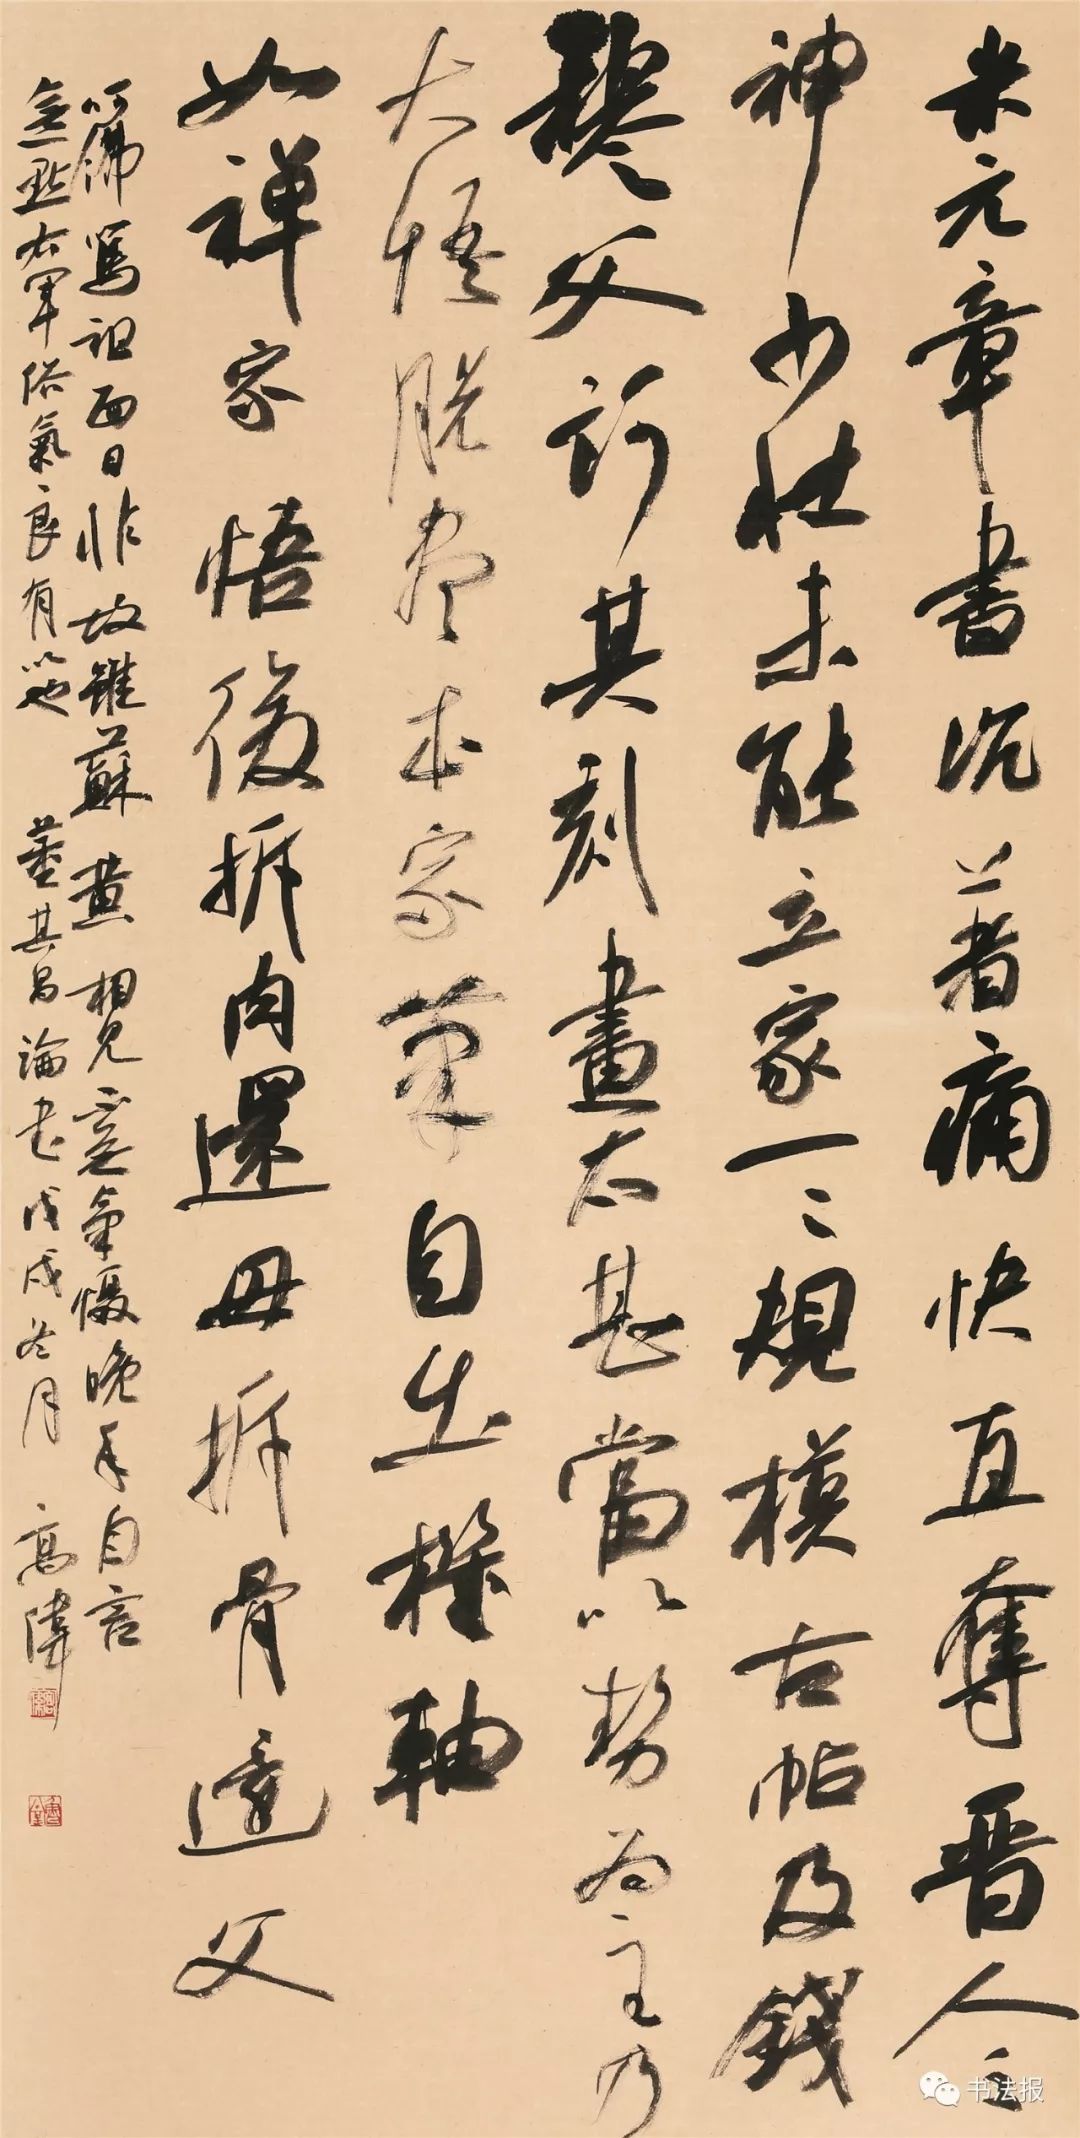 米元章書沉著痛快直奪晉人之
神少壯未能立家一一規模古帖及錢
穆父訶其刻畫太甚當以勢為主乃
大悟脫盡本家筆自出機軸
如禪家悟後拆肉還母拆骨還父
呵佛罵祖面目非故雖蘇黃相見不無氣懾晚年自言
無一點右軍俗氣良有以也 董其昌論書 戊戌冬月 高偉
书法报